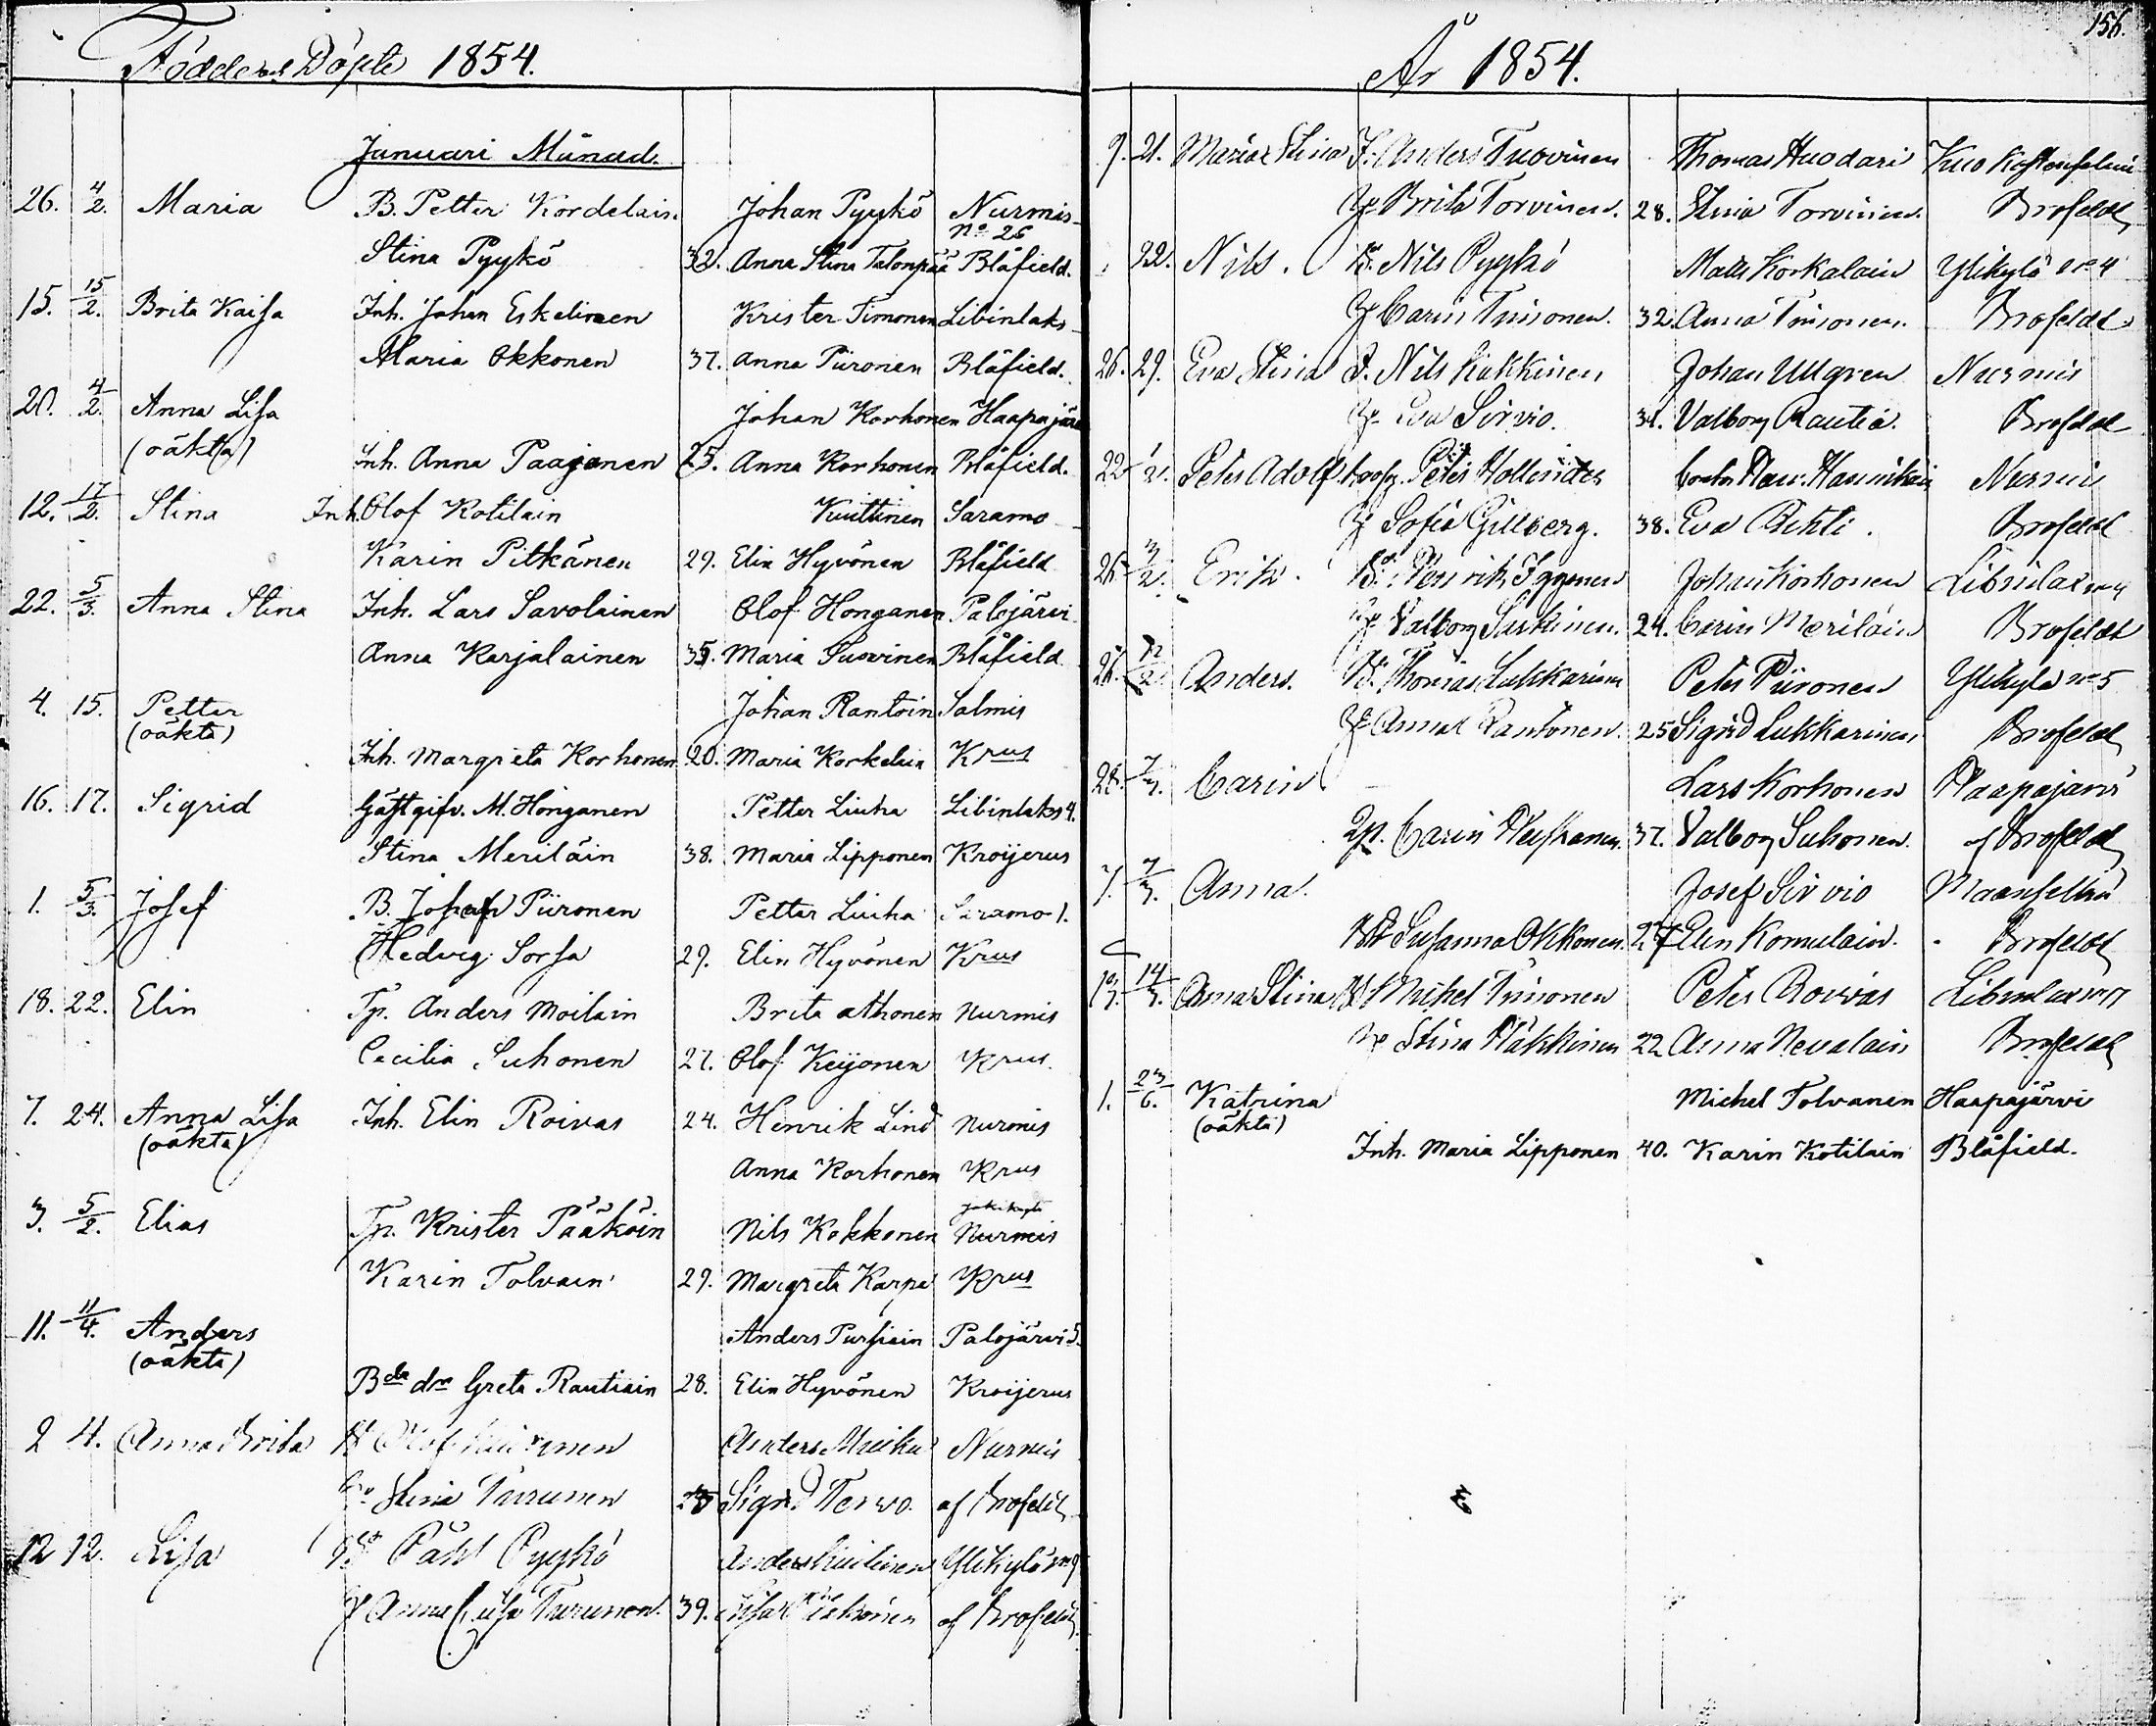 Födde och Döpte 1854.
Januari Månad.
26. 4/2. Maria B. Petter Kordelain. Johan Pyykö Nurmis
No 26
Stina Pyykö 32. Anna Stina Talonpää Blåfield.
15. 15/2. Brita Kaisa Inh. Johan Eskelinen Krister Timonen Libinlaks
Maria Okkonen 37. Anna Piironen Blåfield.
20. 4/2. Anna Lisa Johan Korhonen Haapajärvi
(oäkta) Inh. Anna Paajanen 25. Anna Korhonen Blåfield.
12. 17/2. Stina Inh. Olof Kotilain Kuittinen Saramo
Karin Pitkänen 29. Elin Hyvönen Blåfield
22. 5/3. Anna Stina Inh. Lars Savolainen Olof Honganen Palojärvi
Anna Karjalainen 35. Maria Suovinen Blåfield
4. 15. Petter Johan Rantoin Salmis
(oäkta)
Inh. Margreta Korhonen 20. Maria Korkelain Krus
16. 17. Sigrid Gästgifv. M. Honganen Petter Liuha Libinlaks 4.
Stina Meriläin 38. Maria Lipponen Kroijerus
1. 5/3. Josef B. Johan Piironen Petter Liuha Saramo 1.
Hedvig Sorsa 29. Elin Hyvönen Krus
18. 22. Elin Tp. Anders Moilain Brita Ahonen Nurmis
Cecilia Suhonen 27. Olof Keijonen Krus.
7. 24. Anna Lisa Inh. Elin Roivas 24. Henrik Lind Nurmis
(oäkta)
Anna Korhonen Krus
3. 5/2. Elias Tp. Krister Pääköin Nils Kokkonen Nurmis
Karin Tolvain 29. Margreta Karpe Krus
11. 11/4. Anders Anders Pursiain Palojärvi 5.
(oäkta)
Bda dr Greta Rautiain 28. Elin Hyvönen Kroijerus
2 4. Anna Brita Olof Anders Nurmis
Stina Turunen Sigrid Tervo. af Brofeldt
12 12. Lisa Påhl Pyykö Anders Ylikylä no 9
Anna Lisa Turunen. 39. Lisa af Brofeldt
156.
År 1854.
9. 21. Maria Stina I. Anders Tuovinen Thomas Huodari
Brita Torvinen. 28. Stina Torvinen. Brofeldt
22. Nils. B. Nils Pyykö Matts Korkalain Ylikylä no 4
Carin Timonen. 32. Anna Timonen. Brofeldt
26. 29. Eva Stina I. Nils Kukkinen Johan Ullgren Nurmis
Eva Sirvio. 34. Valborg Rautia. Brofeldt
22 1/2. Peter Adolf Peter Hollender Nurmis
Sofia Gillberg. 38. Eva Pehti. Brofeldt
26 3/2. Erik. Henrik Iggonen Johan Korhonen Libinlax
Valborg Sarkinen. 24. Carin Meriläin Brofeldt
26. Anders. Thomas Lukkarinen Peter Piironen Ylikylä no 5
Anna Pantonen. 25 Sigrid Lukkarinen Brofeldt
28. 7/3. Carin Lars Korhonen Haapajärvi
Carin Heiskanen. 37. Valborg Suhonen. af Brofeldt
7. 7/3. Anna. Josef Sirvio Maanselkä
Susanna Okkonen. 27 Elin Komulain. Brofeldt
14/3. Anna Stina Mikel Timonen Peter Roivas Libinlax
Stina Häkkinen 22 Anna Nevalain Brofeldt
1. 23/6. Katrina Michel Tolvanen Haapajärvi
(oäkta)
Inh. Maria Lipponen 40. Karin Kotilain Blåfield.